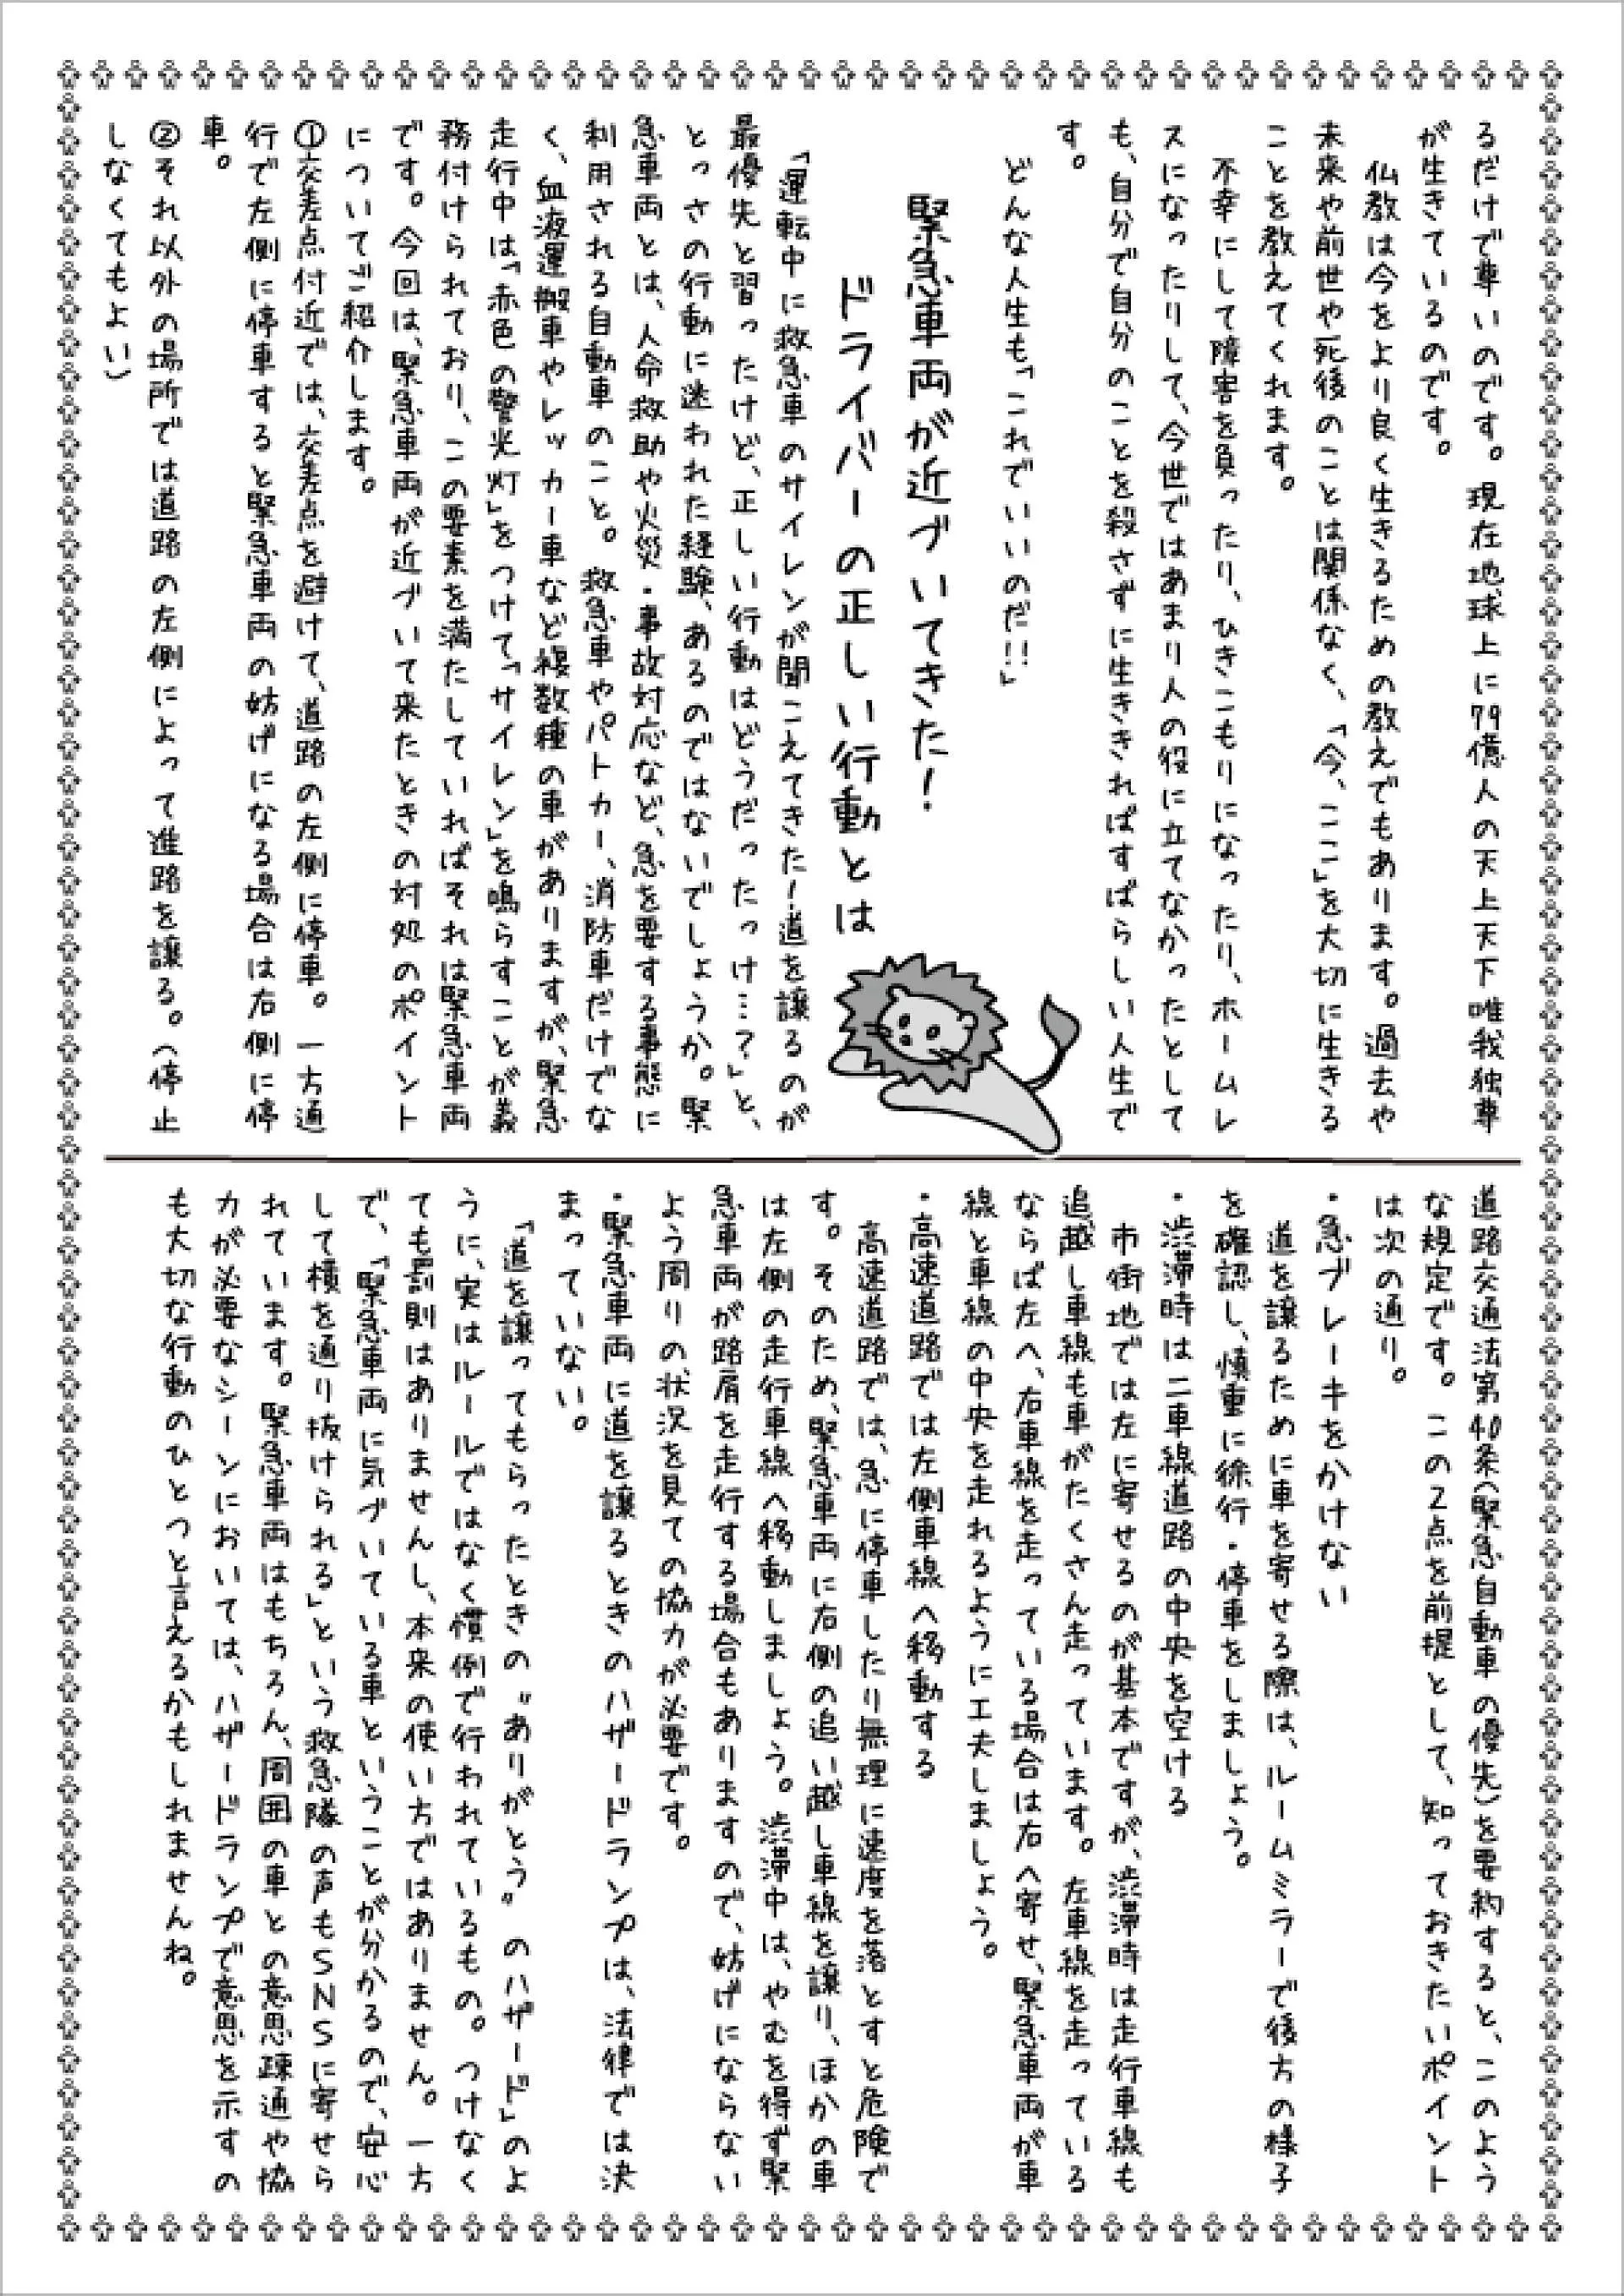 るだけで尊いのです。現在地球上に79億人の天上天下唯我独尊
が生きているのです。
仏教は今をより良く生きるための教えでもあります。過去や
未来や前世や死後のことは関係なく、「今、ここ」を大切に生きる
ことを教えてくれます。
不幸にして障害を負ったり、ひきこもりになったり、ホームレ
スになったりして、今世ではあまり人の役に立てなかったとして
も、自分で自分のことを殺さずに生ききればすばらしい人生で
す。
どんな人生も「これでいいのだ!!」
緊急車両が近づいてきた!
ドライバーの正しい行動とは
「運転中に救急車のサイレンが聞こえてきた!道を譲るのが
最優先と習ったけど、正しい行動はどうだったっけ…?」と、
とっさの行動に迷われた経験、あるのではないでしょうか。緊
急車両とは、人命救助や火災・事故対応など、急を要する事態に
利用される自動車のこと。救急車やパトカー、消防車だけでな
く、血液運搬車やレッカー車など複数種の車がありますが、緊急
走行中は「赤色の警光灯」をつけて「サイレン」を鳴らすことが義
務付けられており、この要素を満たしていればそれは緊急車両
です。今回は、緊急車両が近づいて来たときの対処のポイント
についてご紹介します。
①交差点付近では、交差点を避けて、道路の左側に停車。一方通
行で左側に停車すると緊急車両の妨げになる場合は右側に停
車。
②それ以外の場所では道路の左側によって進路を譲る。(停止
しなくてもよい)
道路交通法第40条(緊急自動車の優先)を要約すると、このよう
な規定です。この2点を前提として、知っておきたいポイント
は次の通り。
・急ブレーキをかけない
道を譲るために車を寄せる際は、ルームミラーで後方の様子
を確認し、慎重に徐行・停車をしましょう。
・渋滞時は二車線道路の中央を空ける
市街地では左に寄せるのが基本ですが、渋滞時は走行車線も
追越し車線も車がたくさん走っています。左車線を走っている
ならば左へ、右車線を走っている場合は右へ寄せ、緊急車両が車
線と車線の中央を走れるように工夫しましょう。
・高速道路では左側車線へ移動する
高速道路では、急に停車したり無理に速度を落とすと危険で
す。そのため、緊急車両に右側の追い越し車線を譲り、ほかの車
は左側の走行車線へ移動しましょう。渋滞中は、やむを得ず緊
急車両が路肩を走行する場合もありますので、妨げにならない
よう周りの状況を見ての協力が必要です。
・緊急車両に道を譲るときのハザードランプは、法律では決
まっていない。
「道を譲ってもらったときの〝ありがとう〟のハザード」のよ
うに、実はルールではなく慣例で行われているもの。つけなく
ても罰則はありませんし、本来の使い方ではありません。一方
で、「緊急車両に気づいている車ということが分かるので、安心
して横を通り抜けられる」という救急隊の声もSNSに寄せら
れています。緊急車両はもちろん、周囲の車との意思疎通や協
力が必要なシーンにおいては、ハザードランプで意思を示すの
も大切な行動のひとつと言えるかもしれませんね。